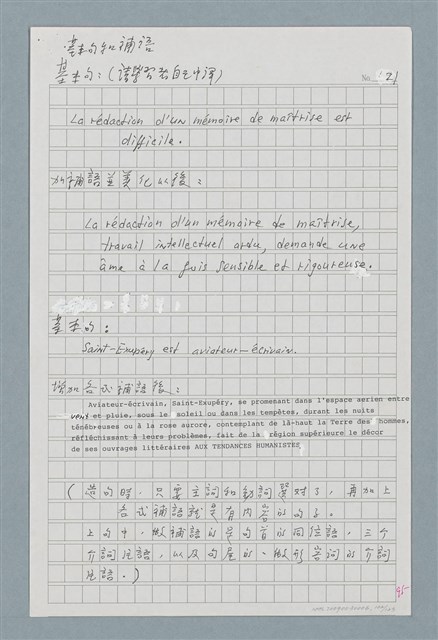 基本句和補語
基本句：(請學習者自己中譯)
No. 21
La rédaction d'un mémoire de maîtrise est
difficile.
加補語並美化以後：
La rédaction d'un mémoire de maîtrise,
travail intellectuel ardu, demande une
âme à la fois sensible et rigoureuse.
基本句：
Saint-Exupéry est aviateur-écrivain.
增加各式補語後：
Aviateur-écrivain, Saint-Exupéry, se promenant dans l'espace aérien entre
vent et pluie, sous le soleil ou dans les tempêtes, durant les nuits
ténébreuses ou à la rose aurore, contemplant de là-haut la Terre des hommes,
réfléchissant à leurs problèmes, fait de la région supérieure le décor
de ses ouvrages littéraires AUX TENDANCES HUMANISTES
(造句時，只要主詞和動詞選對了，再加上
各式補語就是有內容的句子。
上句中，做補語的是句首的同位語，三個
介詞片語，以及句尾的、做形容詞的介詞
片語。)
95